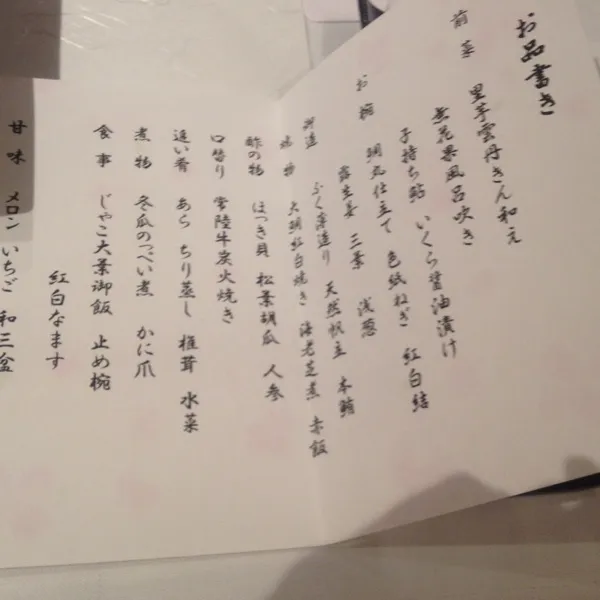 お品書き
前菜 里芋雲丹きん和え
無花果風呂吹き
子持ち鮎 いくら醤油漬け
お椀 鯛丸仕立て 色紙ねぎ 紅白結
露生姜 三葉 浅葱
造 ふく薄造り 天然帆立 本鮪
焼物 大鯛紅白焼き 海老芝煮 赤飯
酢の物 ほっき貝 松葉胡瓜 人参
口替り 常陸牛炭火焼き
追い肴 あら ちり蒸し 椎茸 水菜
煮物 冬瓜のつべい煮 かに爪
食事 じゃこ大葉御飯 止め椀
紅白なます
甘味 メロン いちご 和三盆